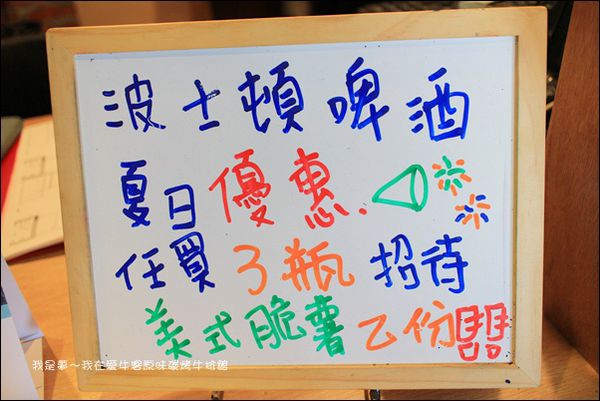 波士頓啤酒
夏日優惠
任買3瓶 招待
美式脆薯乙份
我是夢~我在愛牛客原味碳烤牛排館